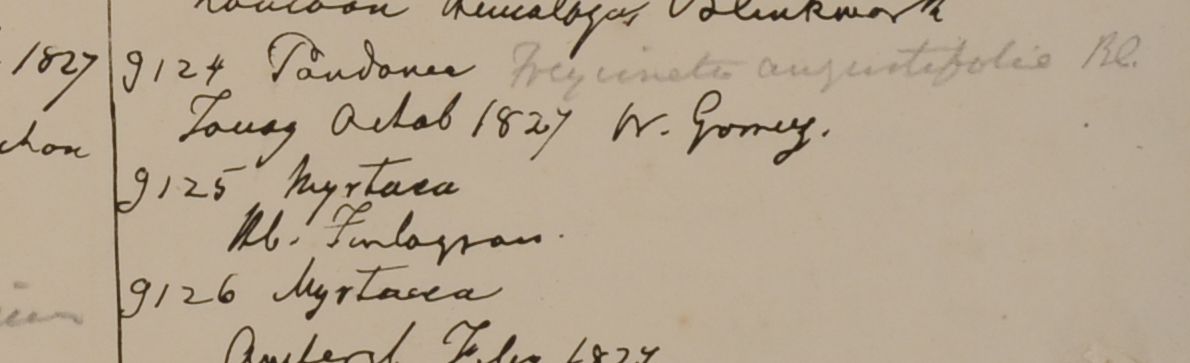 Himalaya, Blinkwork
1827
9124 Pandanee Freycinetia angustifolia Bl.
Tavoy Octob 1827 W. Gomez.
9125 Myrtacea
Hb. Finlayson.
9126 Myrtacea
Amherst Feby 1827